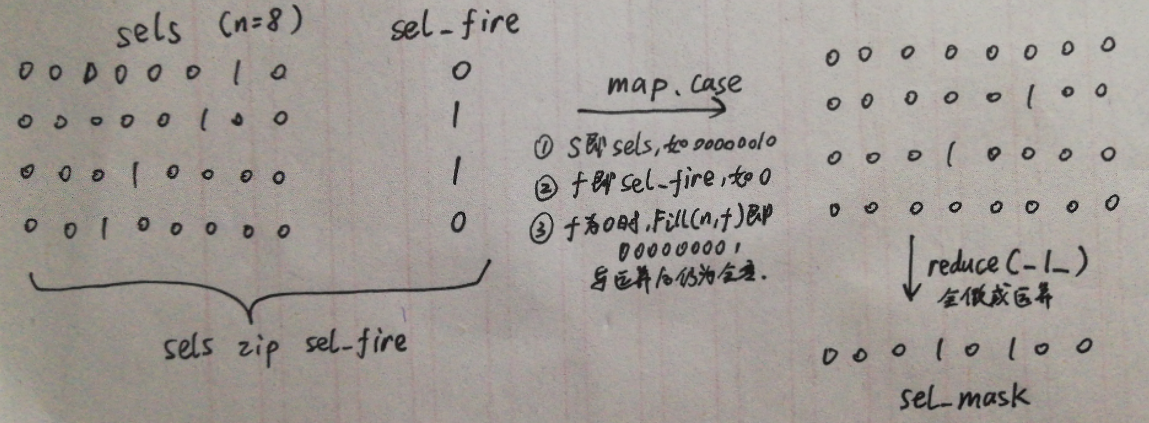 sels (n=8)
sel_fire
0 0 0 0 0 0 1 0
0
0 0 0 0 0 1 0 0
1
0 0 0 1 0 0 0 0
1
0 0 1 0 0 0 0 0
0
sels zip sel_fire
map.case
① S即sels,如00000010
② f即sel_fire,如0
③ f为0时,Fill(n,f)即
00000000,
与运算后仍为全零.
0 0 0 0 0 0 0 0
0 0 0 0 0 1 0 0
0 0 0 1 0 0 0 0
0 0 0 0 0 0 0 0
reduce(_|_)
全做或运算
0 0 0 1 0 1 0 0
sel_mask